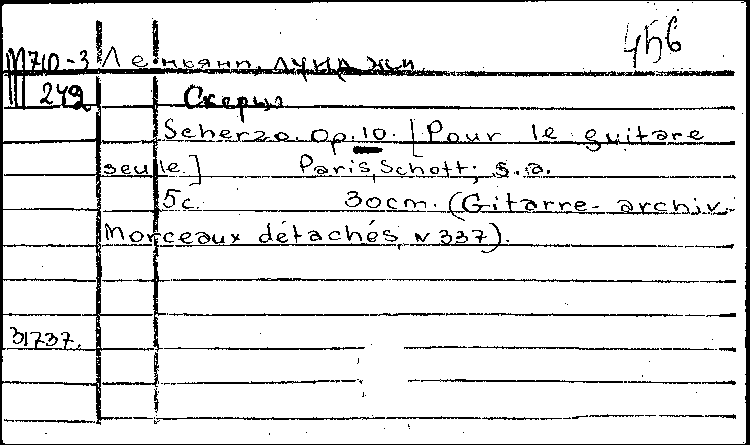 456
М710-3 Леньяни, Луиджи.
249 Скерцо
Scherzo. Op. 10. [Pour le guitare
seule.] Paris, Schott; s.a.
5с. 30cm. (Gitarre-archiv.
Morceaux détachés, N 337).
31737.